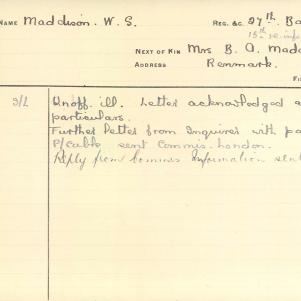 NAME Maddison. W. S. REG. &C. 27th. Ba
NEXT OF KIN Mrs B. A. Madd
ADDRESS Renmark.
Unoff. ill. Letter acknowledged a
particulars.
Further letter from Enquirer with pa
P/cable sent Commis. London.
Reply from Commis Information sent